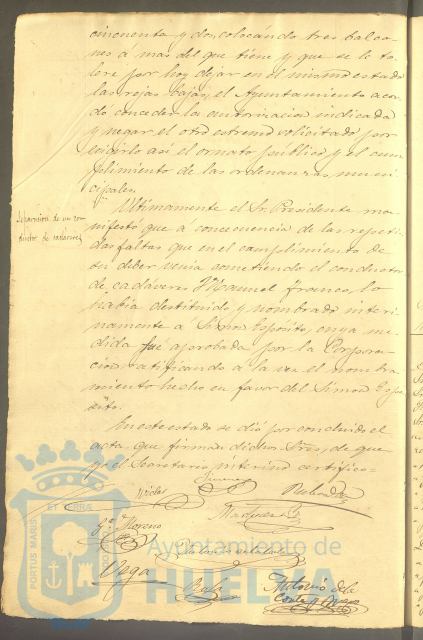 cincuenta y dos, colocándo tres balco-
nes á mas del que tiene y que se le to-
lere por hoy dejar en el mismo estado
las rejas bajas, el Ayuntamiento acor-
dó conceder la autorizacion indicada
y negar el otro estremo solicitado por
exigirlo así el ornato público y el cum-
plimiento de las ordenanzas muni-
cipales.
Separacion de un con-
ductor de cadáveres
Ultimamente el Sr. Presidente ma-
nifestó que á consecuencia de las repeti-
das faltas que en el cumplimiento de
su deber venia cometiendo el conductor
de cadáveres Manuel Franco, lo
habia destituido y nombrado interi-
namente á Simon Espósito, cuya me-
dida fué aprobada por la Corpora-
cion ratificando á la vez el nombra-
miento hecho en favor del Simon Espo-
sito.
En este estado se dió por concluido el
acta que firman dichos Sres, de que
yo el Secretario interino certifico=
Moreno
Marquez
Vega
Antonio de la
Corte y
PORTUS MARIS ET TERRAE CUSTODIA
Ayuntamiento de
HUELVA